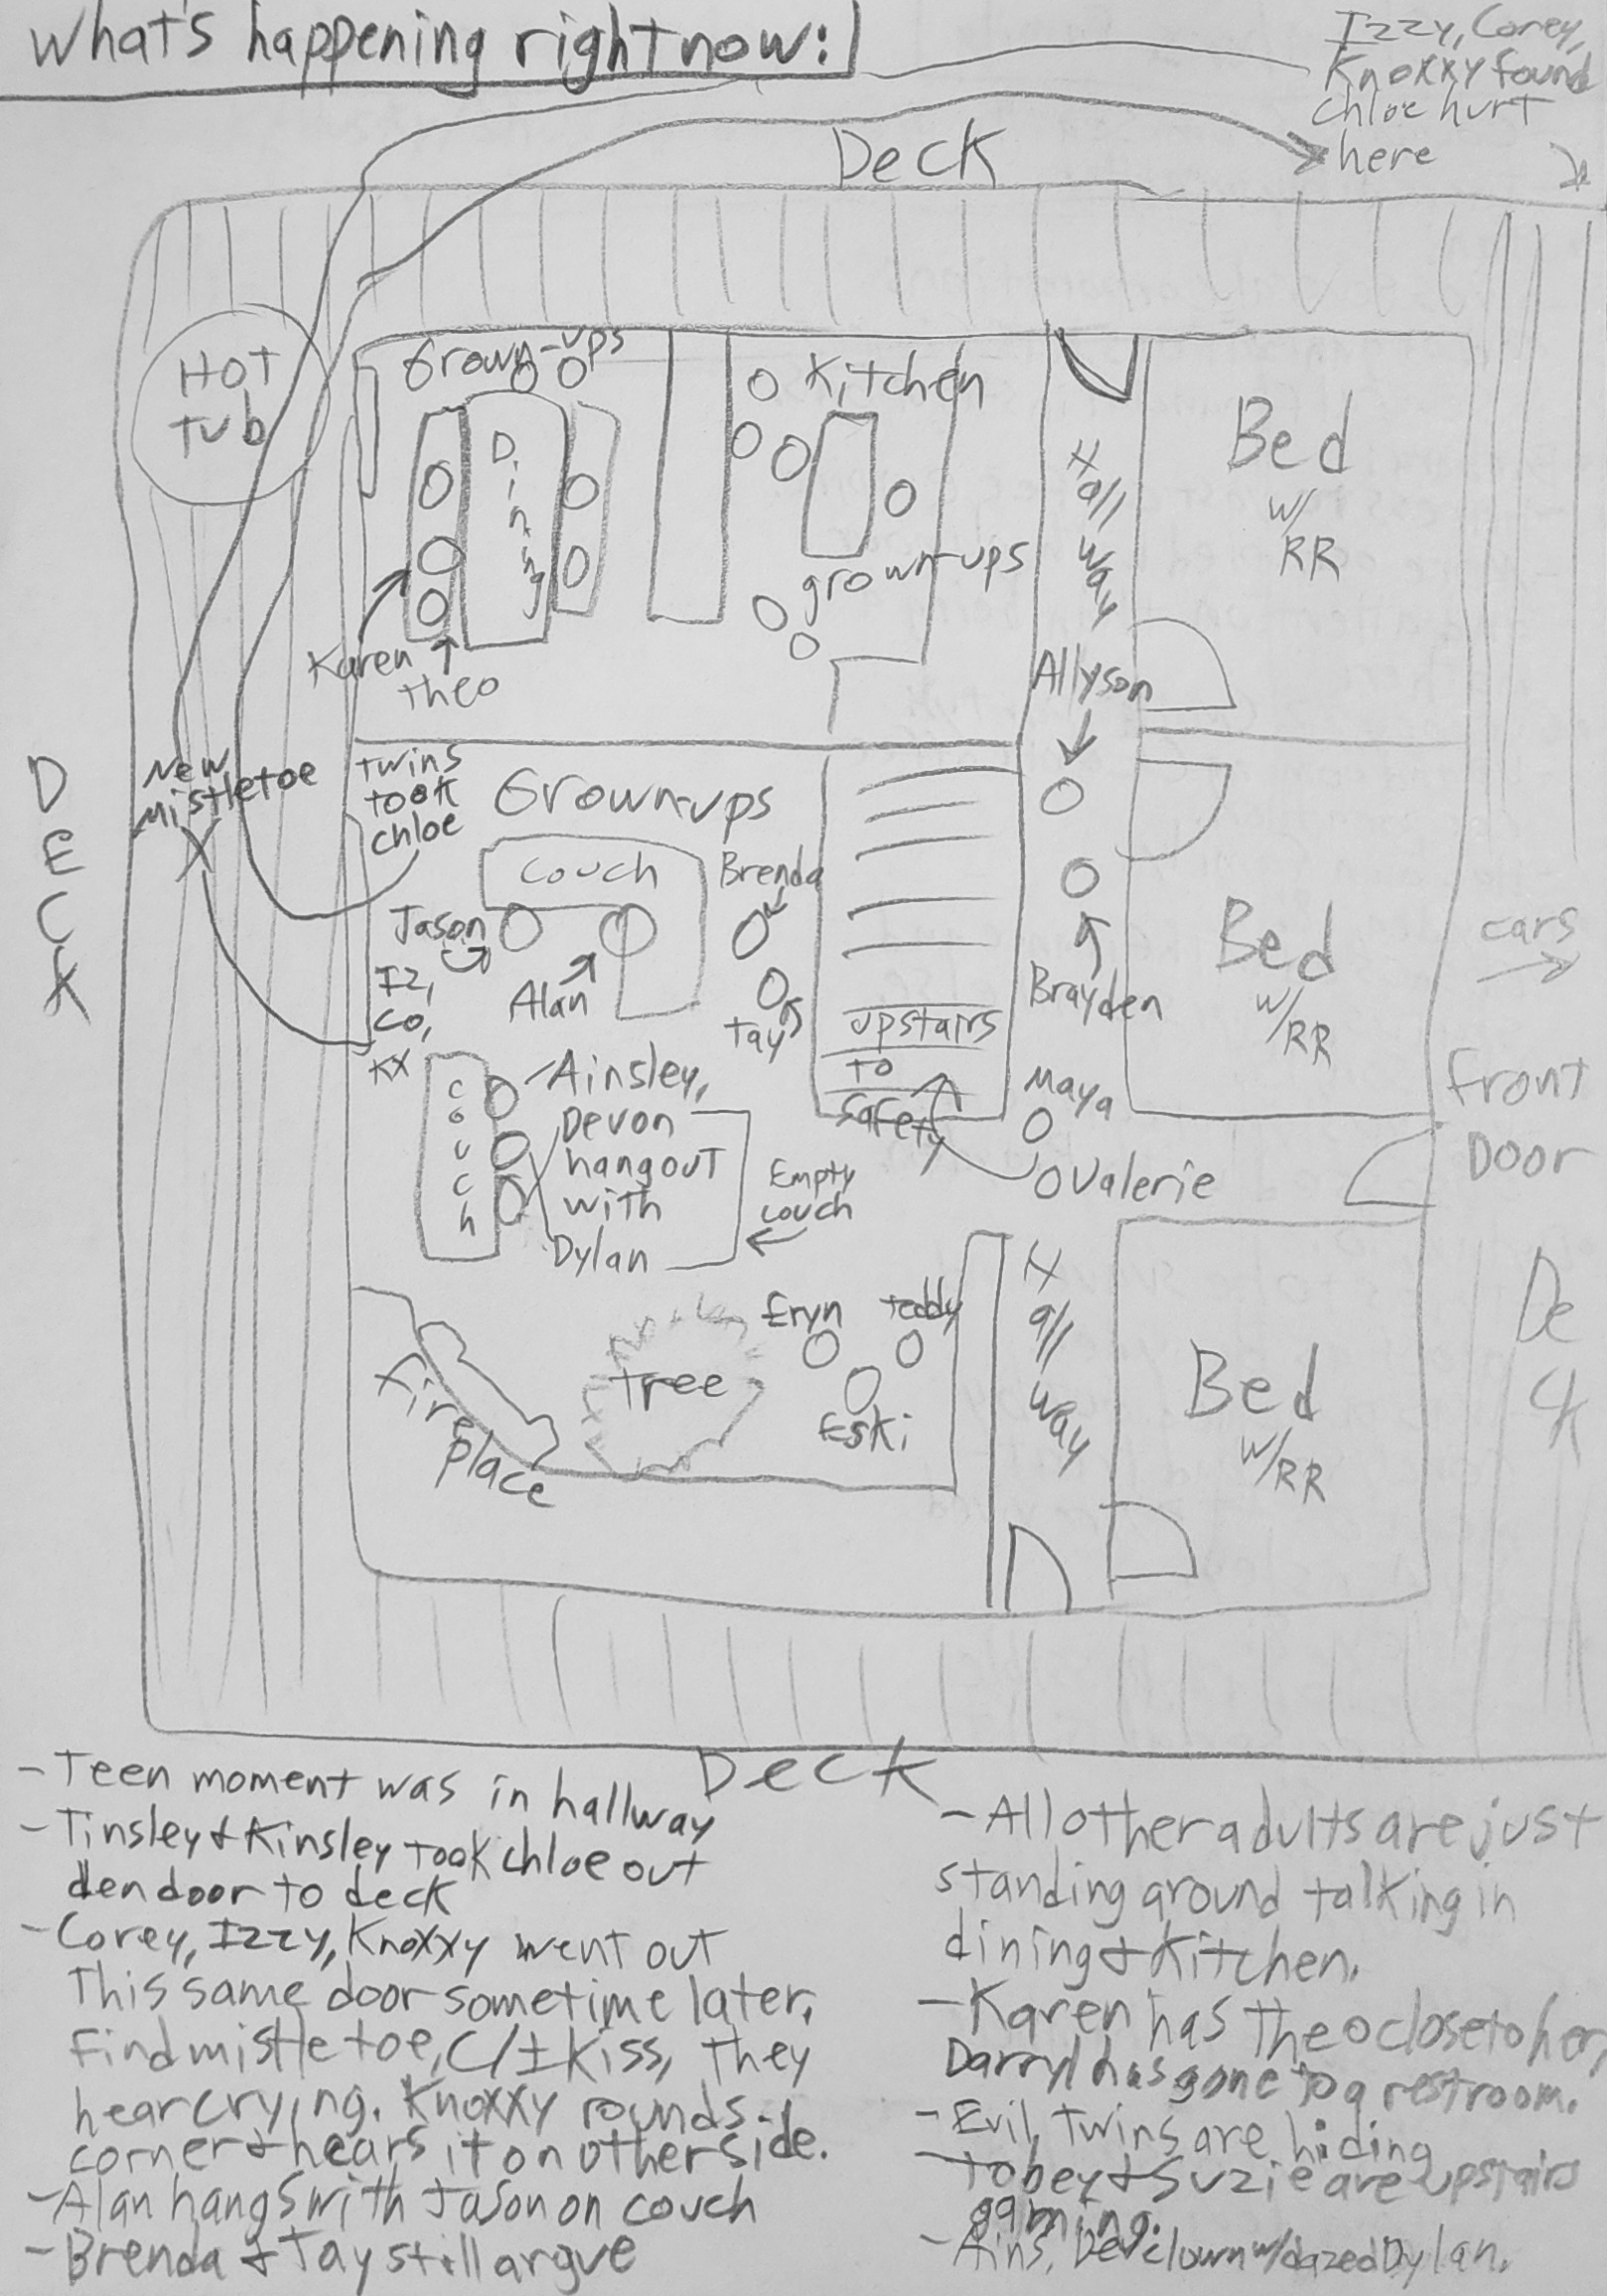 What's happening right now:
Izzy, Corey,
Knoxxy found
Chloe hurt
here
Deck
Hot
Tub
Grown-ups
Dining
Kitchen
grown-ups
Hallway
Bed
w/
RR
Karen
Theo
Allyson
New
Mistletoe
X
DECK
Twins
took
Chloe
Grown-ups
couch
Brenda
Jason
Alan
Tay
Iz,
Co,
KX
upstairs
to
safety
Brayden
Bed
w/RR
cars
Front
Door
Maya
Valerie
couch
Ainsley,
Devon
hangout
with
Dylan
Empty
couch
Eryn
Teddy
Eski
Tree
Fire
place
Hallway
Bed
w/RR
Deck
Deck
- Teen moment was in hallway
- Tinsley & Kinsley took Chloe out
den door to deck
- Corey, Izzy, Knoxxy went out
This same door sometime later,
Find mistletoe, C/I kiss, they
hear crying. Knoxxy rounds
corner & hears it on other side.
- Alan hangs with Jason on couch
- Brenda & Tay still argue
- All other adults are just
standing around talking in
dining & kitchen.
- Karen has Theo close to her,
Darryl has gone to a restroom.
- Evil twins are hiding
- Tobey & Suzie are upstairs
gaming.
- Ains, Dev clown w/ dazed Dylan.